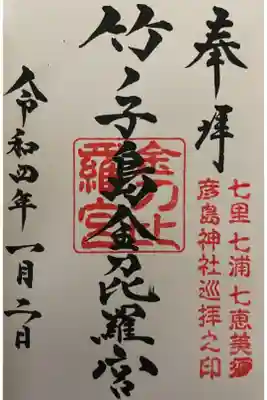 奉拝
七里七浦七恵美須
彦島神社巡拝之印
竹ノ子島金毘羅宮
金刀比羅宮
令和四年一月二日